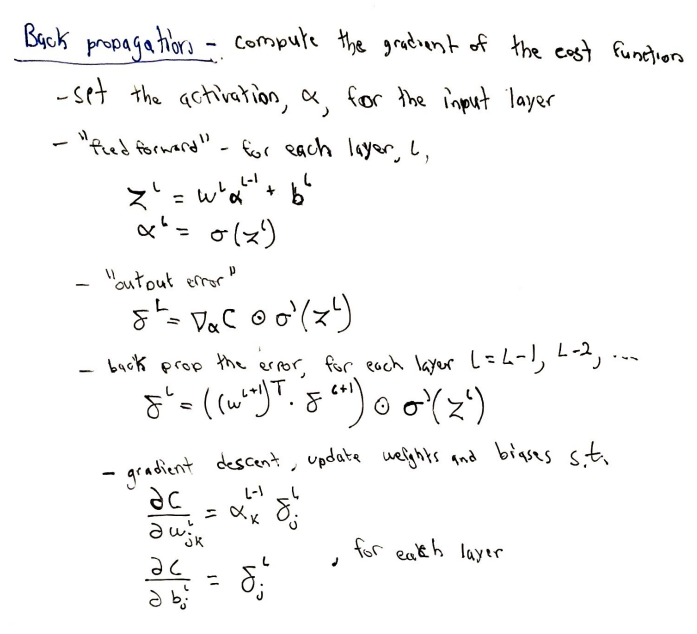 Back propagation - compute the gradient of the cost function
- set the activation, α, for the input layer
- "feed forward" - for each layer, l,
z^l = w^l α^{l-1} + b^l
α^l = σ(z^l)
- "outout error"
δ^L = ∇_α C ⊙ σ'(z^L)
- back prop the error, for each layer l = L-1, L-2, ...
δ^l = ((w^{l+1})^T · δ^{l+1}) ⊙ σ'(z^l)
- gradient descent, update weights and biases s.t.
∂C/∂w^l_{jk} = α^{l-1}_k δ^l_j
∂C/∂b^l_j = δ^l_j , for each layer